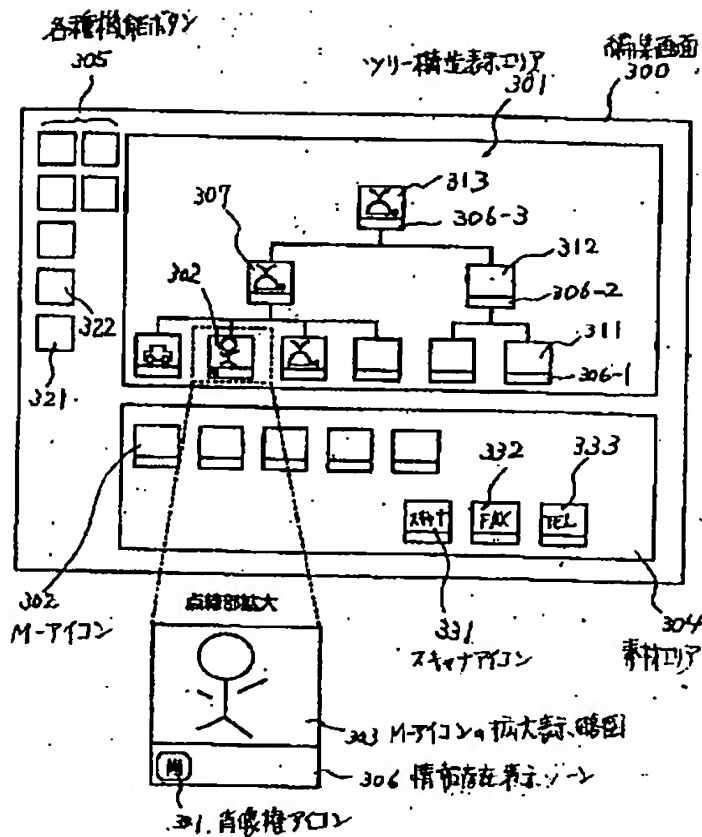 各種機能ボタン
305
ツリー構造表示エリア
301
編集画面
300
313
306-3
307
312
306-2
302
311
306-1
322
321
332
333
スキャナ
FAX
TEL
302
M-アイコン
点線部拡大
331
スキャナアイコン
304
素材エリア
303 M-アイコンの拡大表示略図
306 情報存在表示ゾーン
肖像権アイコン